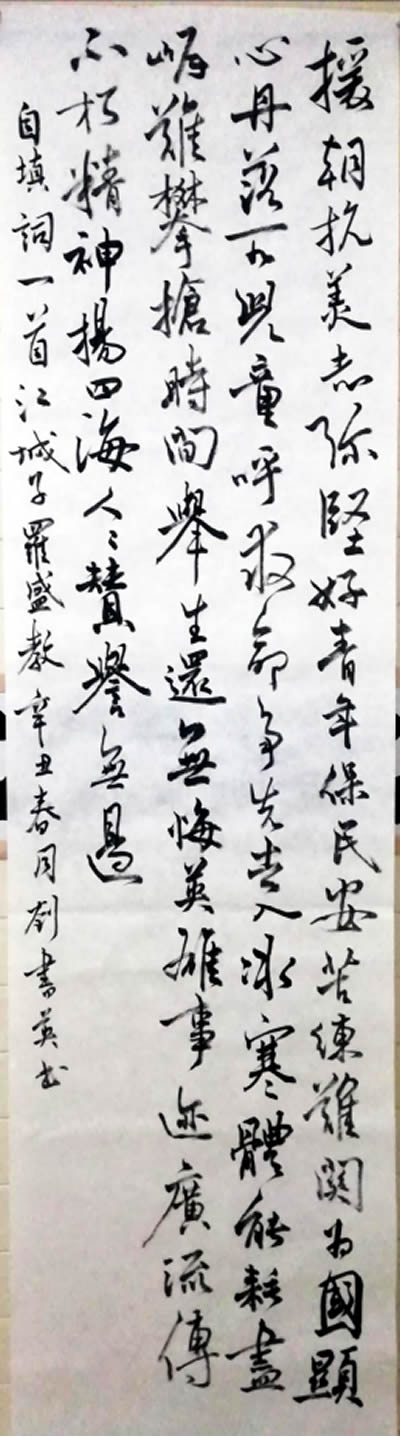 援朝抗美志弥堅好青年保民安苦練難関为國顯
心丹落水兒童呼救命争先去入冰寒體能耗盡
岸難攀搶時間舉生還無悔英雄事迹廣流傳
不朽精神揚四海人々賛譽無邊
自填詞一首江城子羅盛教辛丑春月刘書英书